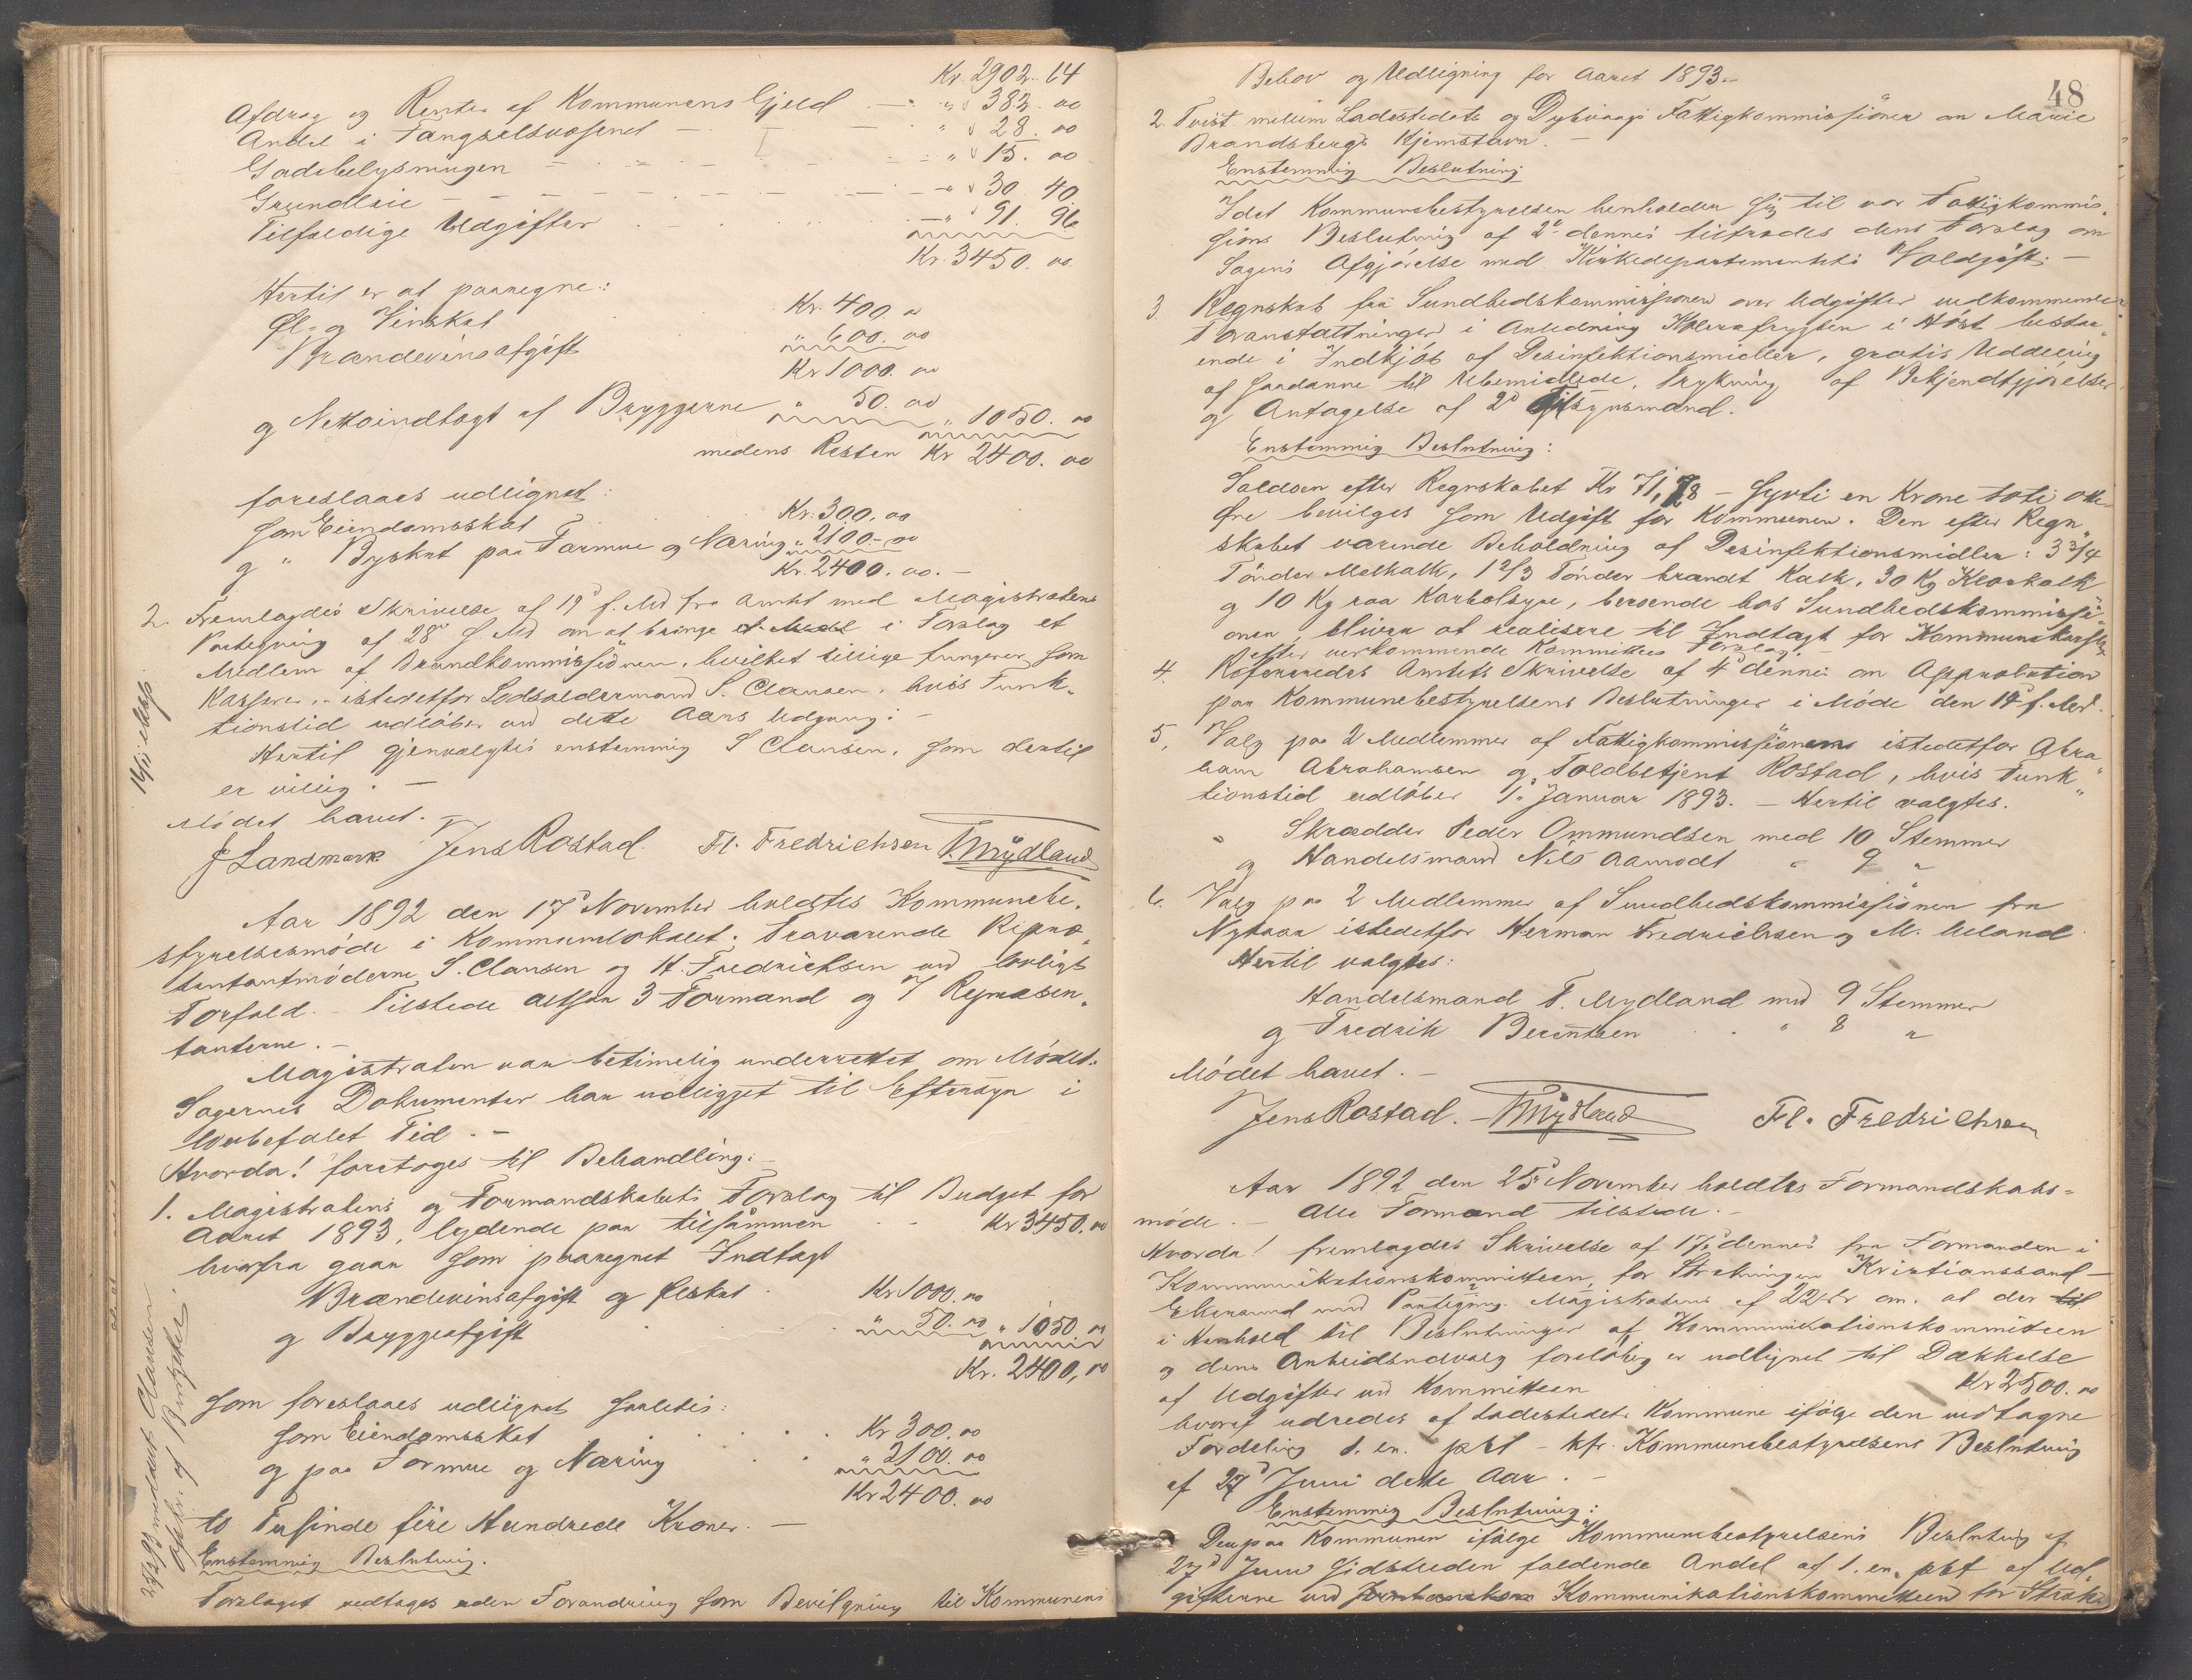 Kr. 2902. 64
Afdrag og Renter af Kommunens Gjeld — " " 382. 00
Andel i Fængselsvæsenet — " " 28. 00
Gadebelysningen — " " 15. 00
Grundleie — " " 30 40
Tilfældige Udgifter — " 91. 96
Kr. 3450. 00
Hertil er at paaregne:
Øl- og Vinskat Kr. 400 "
Brændevinsafgift " 600. 00
Kr 1000. 00
og Nettoindtægt af Bryggerne " 50. 00 " 1050. 00
medens Resten Kr 2400. 00
foreslaaes udlignet:
som Eiendomsskat Kr. 300. 00
og " Byskat paa Formue og Næring " 2100.- 00
Kr. 2400. 00. —
2. Fremlagdes Skrivelse af 19d f. Md fra Amtet med Magistratens
Paategning af 28d f. Md om at bringe i Forslag et
Medlem af Brandkommissionen, hvilket tillige fungerer som
Kasserer, istedetfor Lodsoldermand S. Clausen, hvis Funk-
tionstid udløber ved dette Aars Udgang: —
Hertil gjenvalgtes enstemmig S Clausen, som dertil
er villig. —
Mødet hævet. —
J Landmark Jens Rostad. Fl. Fredrichsen T. Mydland
Aar 1892 den 17d November holdtes Kommunebe-
styrelsesmøde i Kommunelokalet. Fraværende Repræ-
sentantmøderne S. Clausen og H. Fredrichsen ved lovligt
Forfald. — Tilstede altsaa 3 Formænd og 7 Repræsen-
tanterne. —
Magistraten var betimelig underrettet om Mødet.
Sagernes Dokumenter har udligget til Eftersyn i
lovbefalet Tid. —
Hvorda! foretoges til Behandling: —
1. Magistratens og Formandskabets Forslag til Budget for
Aaret 1893, lydende paa tilsammen Kr 3450. 00
hvorfra gaar som paaregnet Indtægt
Brændevinsafgift og Ølskat Kr 1000. 00
og Bryggeafgift " 50. 00 " 1050. 00
Kr. 2400, 00
som foreslaaes udlignet saaledes:
som Eiendomsskat Kr 300. 00
og paa Formue og Næring " 2100. 00
Kr 2400. 00
to Tusinde fire Hundrede Kroner. —
Enstemmig Beslutning.
Forslaget vedtages uden Forandring som Bevilgning til Kommunens
16/11 udsk.
Clausen
Afskr. af Budgettet.
48
Behov og Udligning for Aaret 1893. —
2. Tvist mellem Ladestedets og Dybvaags Fattigkommissioner om Marie
Brandsbergs Hjemstavn. —
Enstemmig Beslutning
Idet Kommunebestyrelsen henholder sig til vor Fattigkommis-
sions Beslutning af 2d dennes tiltrædes dens Forslag om
Sagens Afgjørelse med Kirkedepartementets Voldgift. —
3. Regnskab fra Sundhedskommissionen over Udgifter vedkommende
Foranstaltninger i Anledning Kolerafrygten i Høst bestaa-
ende i Indkjøb af Desinfektionsmidler, gratis Uddeling
af saadanne til Ubemidlede, Trykning af Bekjendtgjørelser
og Antagelse af 2d Tilsynsmænd.
Enstemmig Beslutning:
Saldoen efter Regnskabet Kr 71,28 — sytti en Krone toti otte
Øre bevilges som Udgift for Kommunen. Den efter Regn-
skabet værende Beholdning af Desinfektionsmidler: 3 3/4
Tønder Melkalk, 1 2/3 Tønder brændt Kalk, 30 Kg Klorkalk
og 10 Kg raa Karbolsyre, beroende hos Sundhedskommissi-
onen, bliver at realisere til Indtægt for Kommunekassen
efter vedkommende Kommittees Forslag. —
4. Refereredes Amtets Skrivelse af 4d dennes om Approbation
paa Kommunebestyrelsens Beslutninger i Møde den 14d f. Md.
5. Valg paa 2 Medlemmer af Fattigkommissionen istedetfor Abra-
ham Abrahamsen og Toldbetjent Rostad, hvis Funk-
tionstid udløber 1ste Januar 1893. — Hertil valgtes.
" Skrædder Peder Ommundsen med 10 Stemmer
og Handelsmand Nils Aamodt " 9 "
6. Valg paa 2 Medlemmer af Sundhedskommissionen fra
Nytaar istedetfor Herman Fredrichsen og M. Ueland
Hertil valgtes:
Handelsmand T. Mydland med 9 Stemmer
og Fredrik Berentsen " 8 "
Mødet hævet. —
Jens Rostad. — T Mydland Fl. Fredrichsen
Aar 1892 den 25d November holdtes Formandskabs-
møde. — Alle Formænd tilstede. —
Hvorda! fremlagdes Skrivelse af 17d dennes fra Formanden i
Kommunikationskommitteen for Strækningen Kristianssand —
Ekersund med Paategning Magistratens af 22de om at der til
i Henhold til Beslutninger af Kommunikationskommitteen
og dens Arbeidsudvalg foreløbig er udlignet til Dækkelse
af Udgifter ved Kommitteen Kr 2500. 00
hvoraf udredes af Ladestedets Kommune ifølge den vedtagne
Fordeling 1. en. pkt — kfr. Kommunebestyrelsens Beslutning
af 27d Juni dette Aar. —
Enstemmig Beslutning:
Den paa Kommunen ifølge Kommunebestyrelsens Beslutning af
27d Juni sidstleden faldende Andel af 1. en. pkt af Ud-
gifterne ved Kommunikationskommitteen for Stræk-